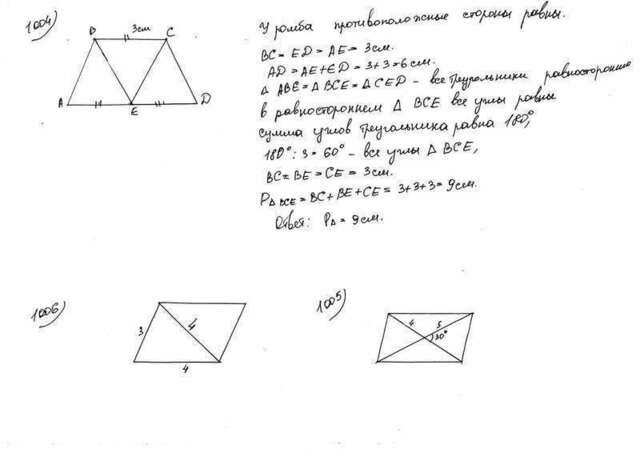 1004)
B
3см
C
A
E
D
У ромба противоположные стороны равны.
BC = ED = AE = 3см.
AD = AE + ED = 3+3=6см.
Δ ABE = Δ BCE = Δ CED - все треугольники равносторонние
в равностороннем Δ BCE все углы равны
сумма углов треугольника равна 180°,
180° : 3 = 60° - все углы Δ BCE,
BC = BE = CE = 3см.
PΔ BCE = BC + BE + CE = 3+3+3 = 9см.
Ответ: PΔ = 9см.
1006)
3
4
4
1005)
4
5
30°